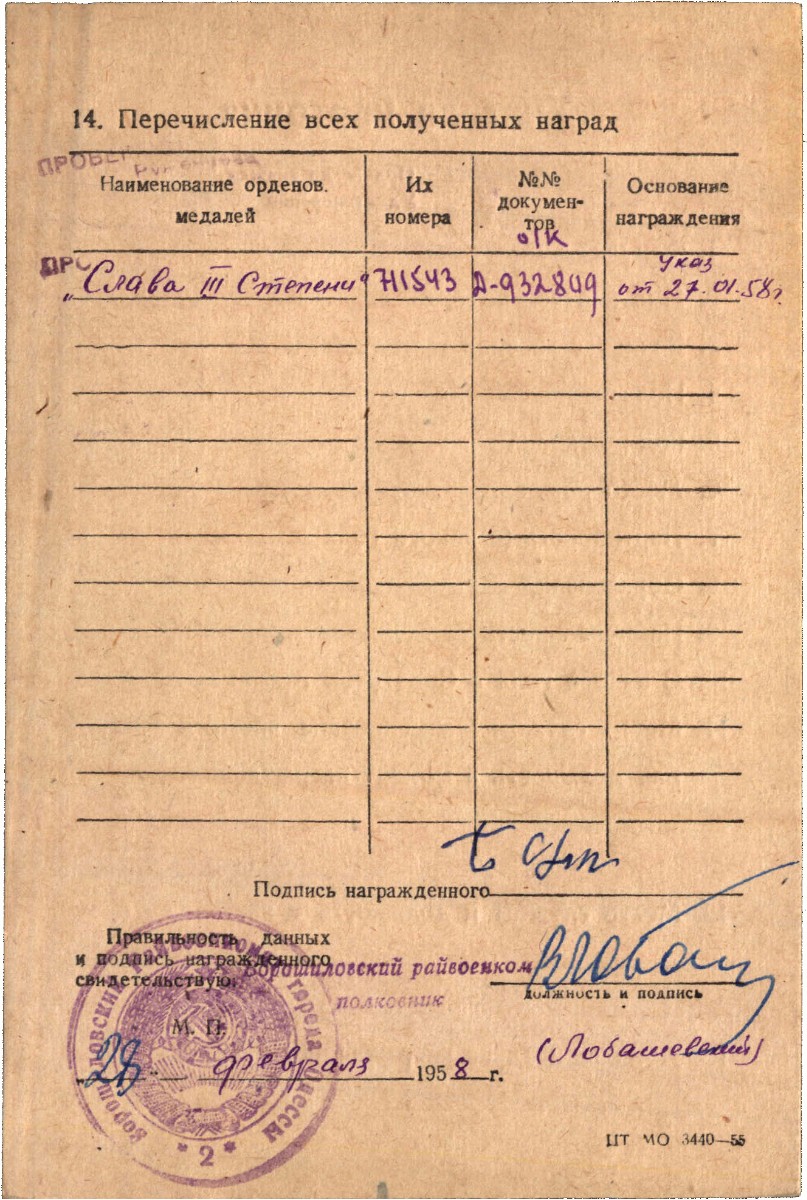 14. Перечисление всех полученных наград
ПРОВЕ
Наименование орденов. медалей
Их номера
№№ докумен-тов
о/к
Основание награждения
ПРО
„Слава III Степени“ 711543 Д-932809 Указ от 27.01.58г.
Подпись награжденного
Правильность данных
и подпись награжденного
свидетельствую.
Ворошиловский райвоенком
полковник
должность и подпись
М. П.
(Лобашевский)
28 февраля 1958 г.
Ворошиловский райвоенкомат города Одессы
* 2 *
ЦТ МО 3440—55